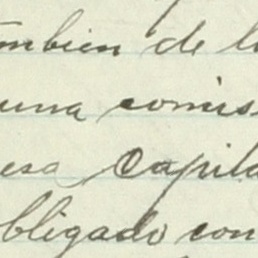 ambien de l
una comis
esa Capita
bligado con